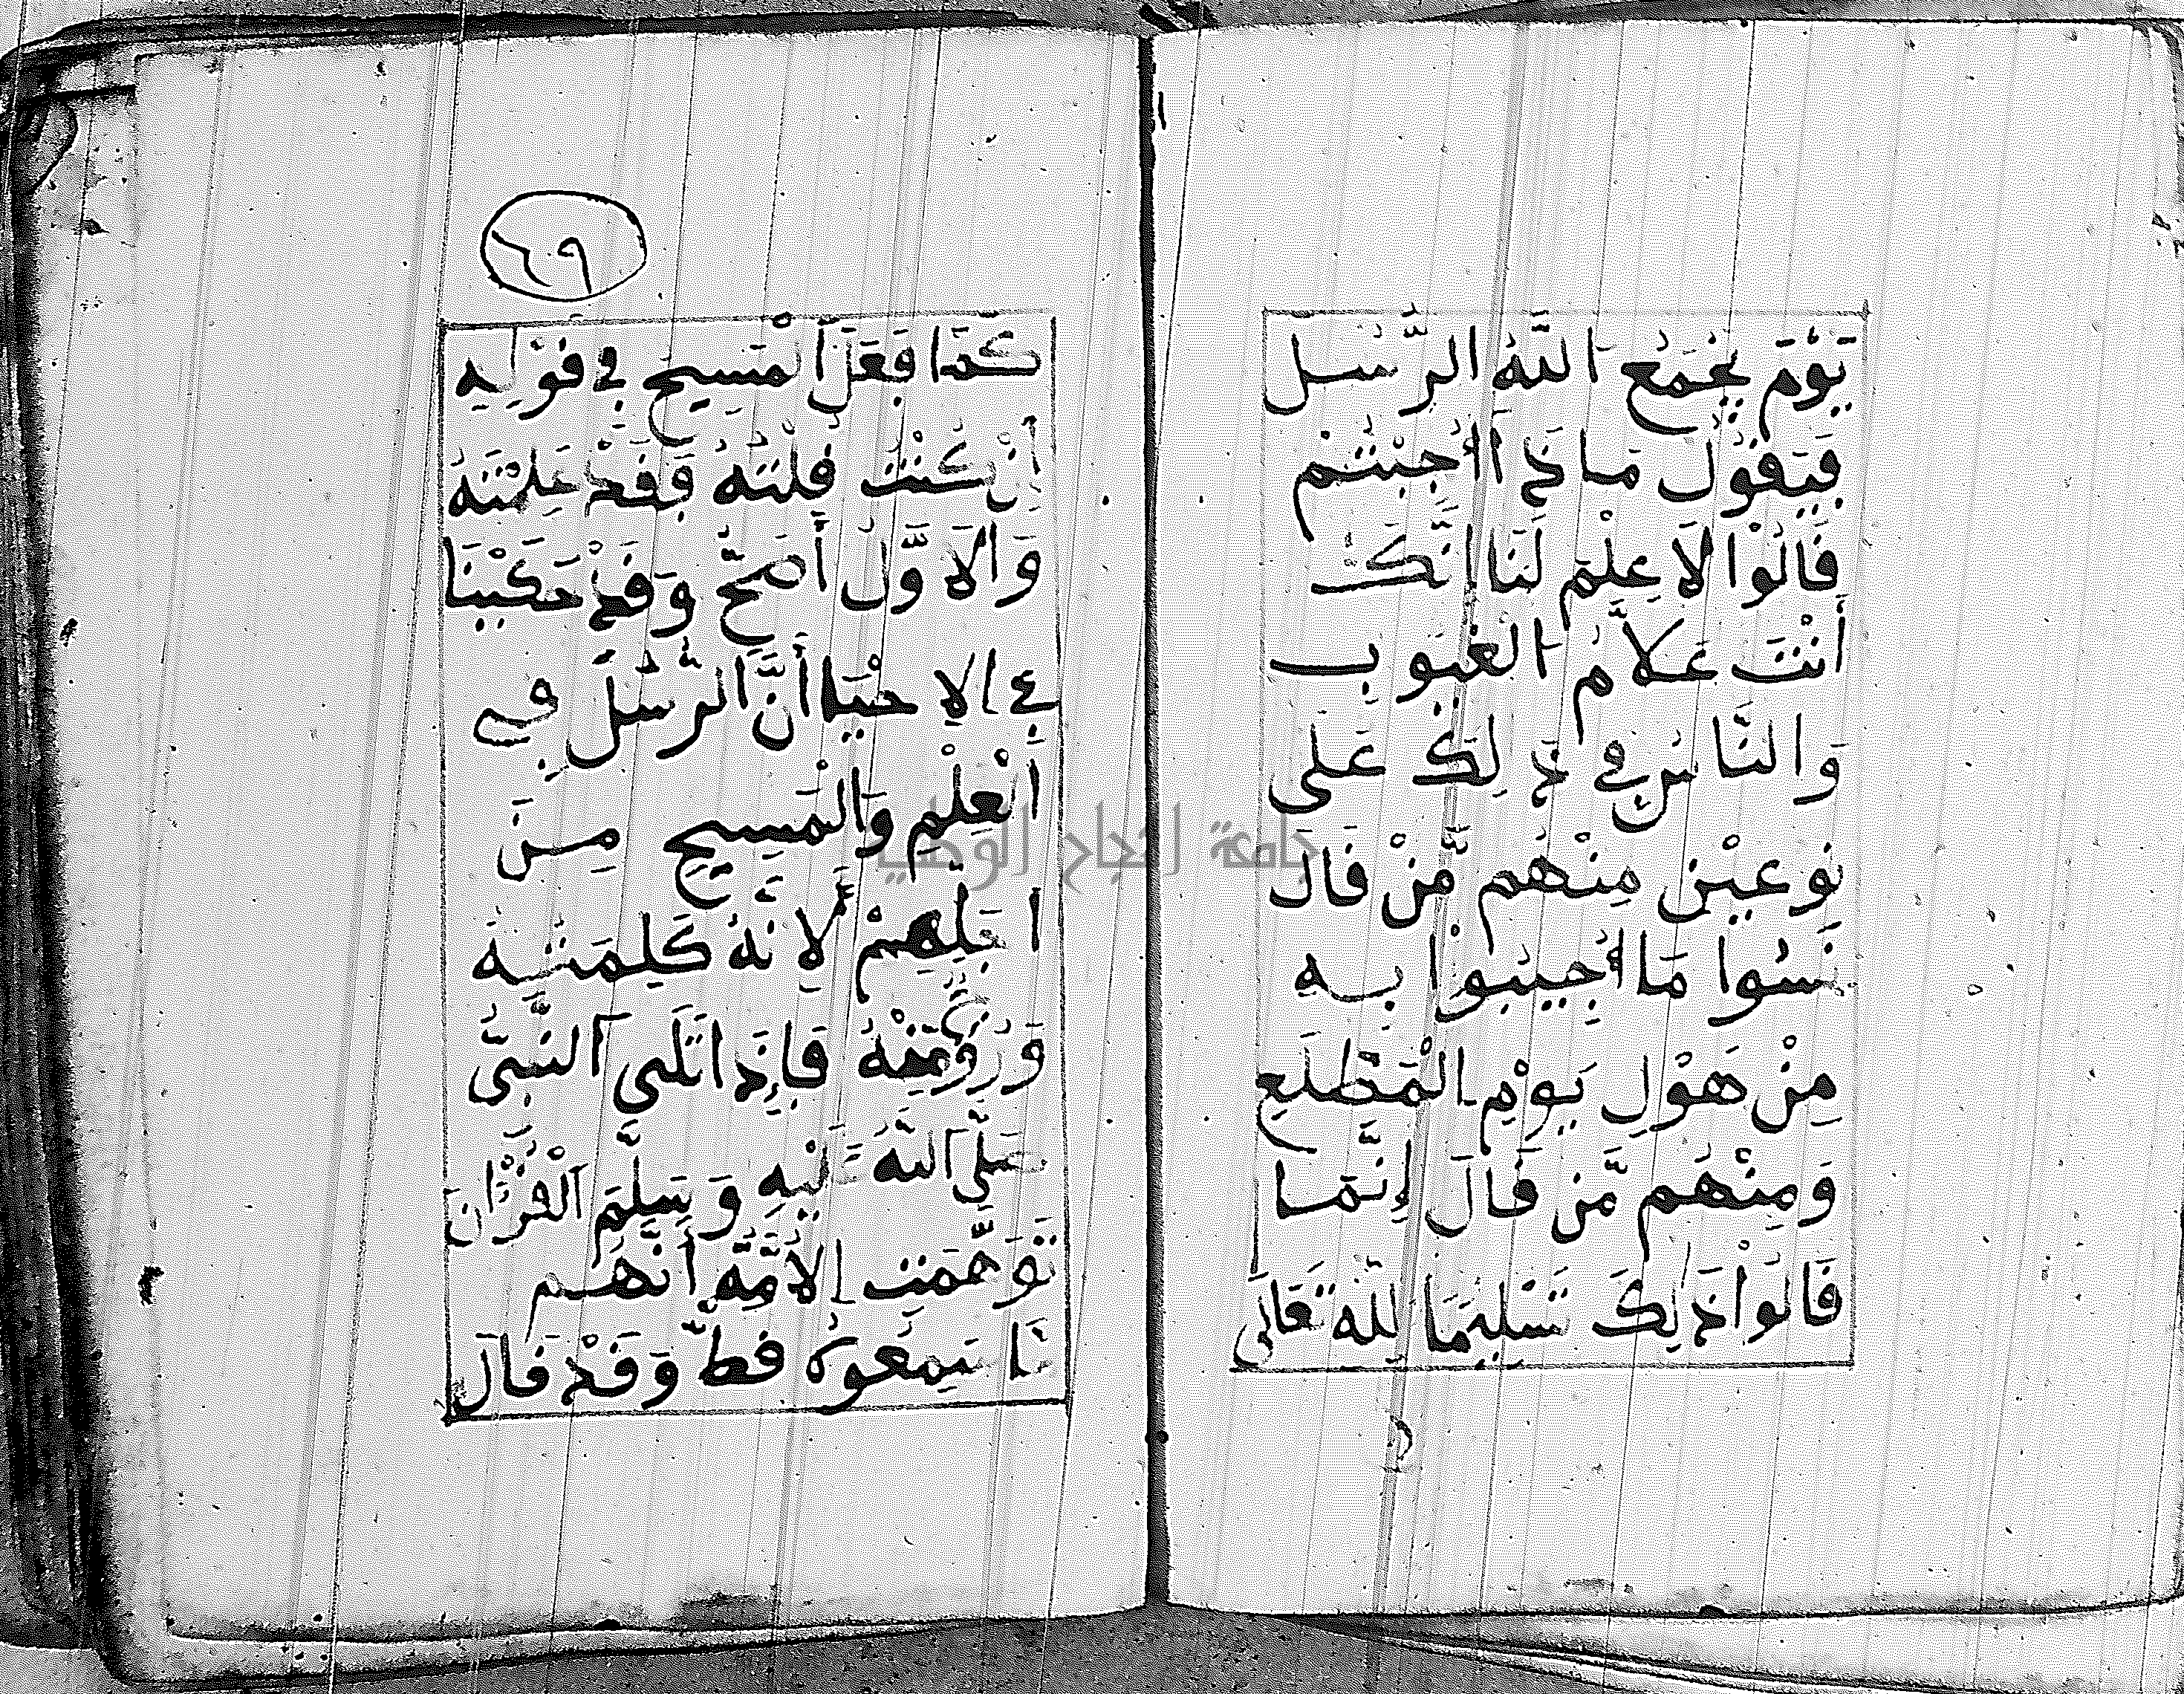 يَوْمَ يَجْمَعُ اللَّهُ الرُّسُل
فَيَقُولُ مَاذَا أُجِبْتُمْ
قَالُوا لاَ عِلْمَ لَنَا إِنَّكَ
أَنْتَ عَلاَّمُ الغُيُوبِ
وَالنَّاسُ فِي ذَلِكَ عَلَى
نَوْعَيْنِ مِنْهُم مَّنْ قَالَ
نَسُوا مَا أُجِيبُوا بِهِ
مِنْ هَوْلِ يَوْمِ الْمَطْلَعِ
وَمِنْهُم مَّن قَالَ إِنَّمَا
قَالُوا ذَلِكَ تَسْلِيمًا لِلَّهِ تَعَالَى
٦٩
كَمَا فَعَلَ الْمَسِيحُ فِي قَوْلِهِ
إِنْ كُنْتُ قُلْتُهُ فَقَدْ عَلِمْتَهُ
وَالأَوَّلُ أَصَحُّ وَقَدْ حَكَيْنَا
فِي الإِحْيَا أَنَّ الرُّسُلَ فِي
الْعِلْمِ وَالْمَسِيحَ مِنْ
أَجَلِّهِمْ لأَنَّهُ كَلِمَتُهُ
وَرُوحٌ مِنْهُ فَإِذَا تَلَى النَّبِيُّ
صَلَّى اللَّهُ عَلَيْهِ وَسَلَّمَ الْقُرْآنَ
تَوَهَّمَتِ الأُمَّةُ أَنَّهُم
مَا سَمِعُوهُ قَطُّ وَقَدْ قَالَ
جامعة النجاح الوطنية